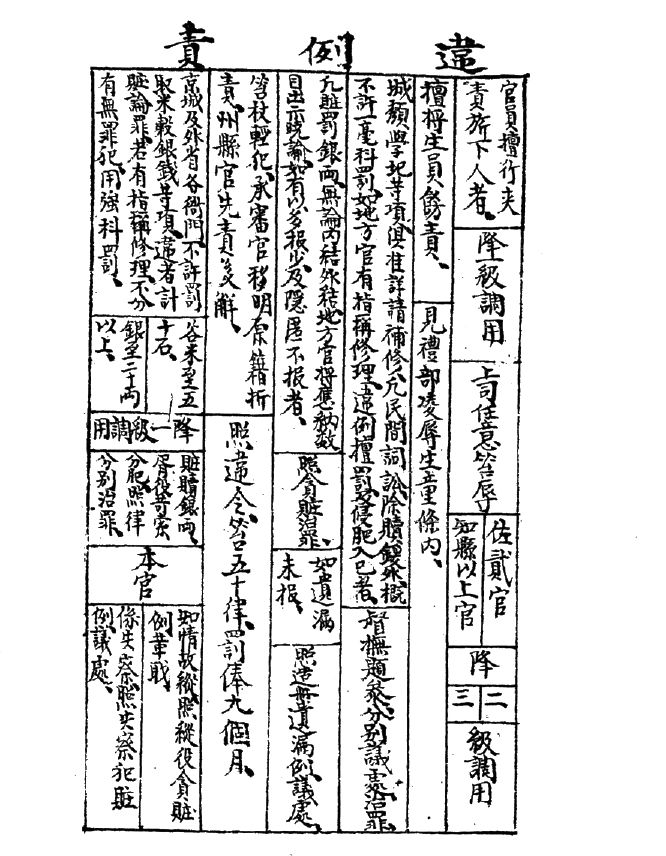 違例責
官員擅行夾
責旂下人者、
降一級調用
上司任意笞辱
佐貳官
知縣以上官
降
二
三
級調用
擅將生員飭責、
見禮部凌辱生童條內、
城頹學圮等項、俱准詳請補修、凡民間詞訟、除贖鍰外、概
不許一毫科罰、如地方官有指稱修理、違例擅罰、及侵肥入己者、
督撫題參、分別議處治罪、
凡贓罰銀兩、無論內結外結、地方官將應納數
目出示曉諭、如有以多報少、及隱匿不報者、
照貪贓治罪、
如遺漏
未報、
照造冊遺漏例議處、
笞杖輕犯、承審官移明原籍折
責、州縣官先責後解、
照違令笞五十律、罰俸九個月、
京城及外省各衙門、不許罰
取米穀銀錢等項、違者計
贓論罪、若有指稱修理、不分
有無罪犯、用強科罰、
谷米至五
十石、
銀至二十兩
以上、
降一級調用
贓贖銀兩、
胥役等索
分肥、照律
分別治罪、
本官
知情故縱、照縱役貪贓
例革職、
係失察、照失察犯贓
例議處、